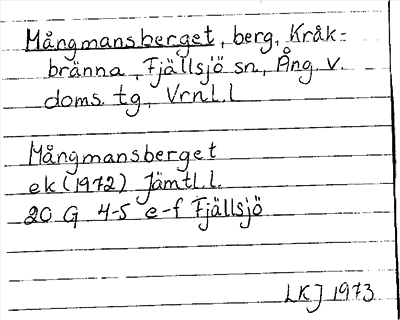 Mångmansberget, berg, Kråk=
bränna, Fjällsjö sn, Ång. v.
doms. tg, Vrnl. l
Mångmansberget
ek (1972) Jämtl. l.
20 G 4-5 e-f Fjällsjö
LKJ 1973